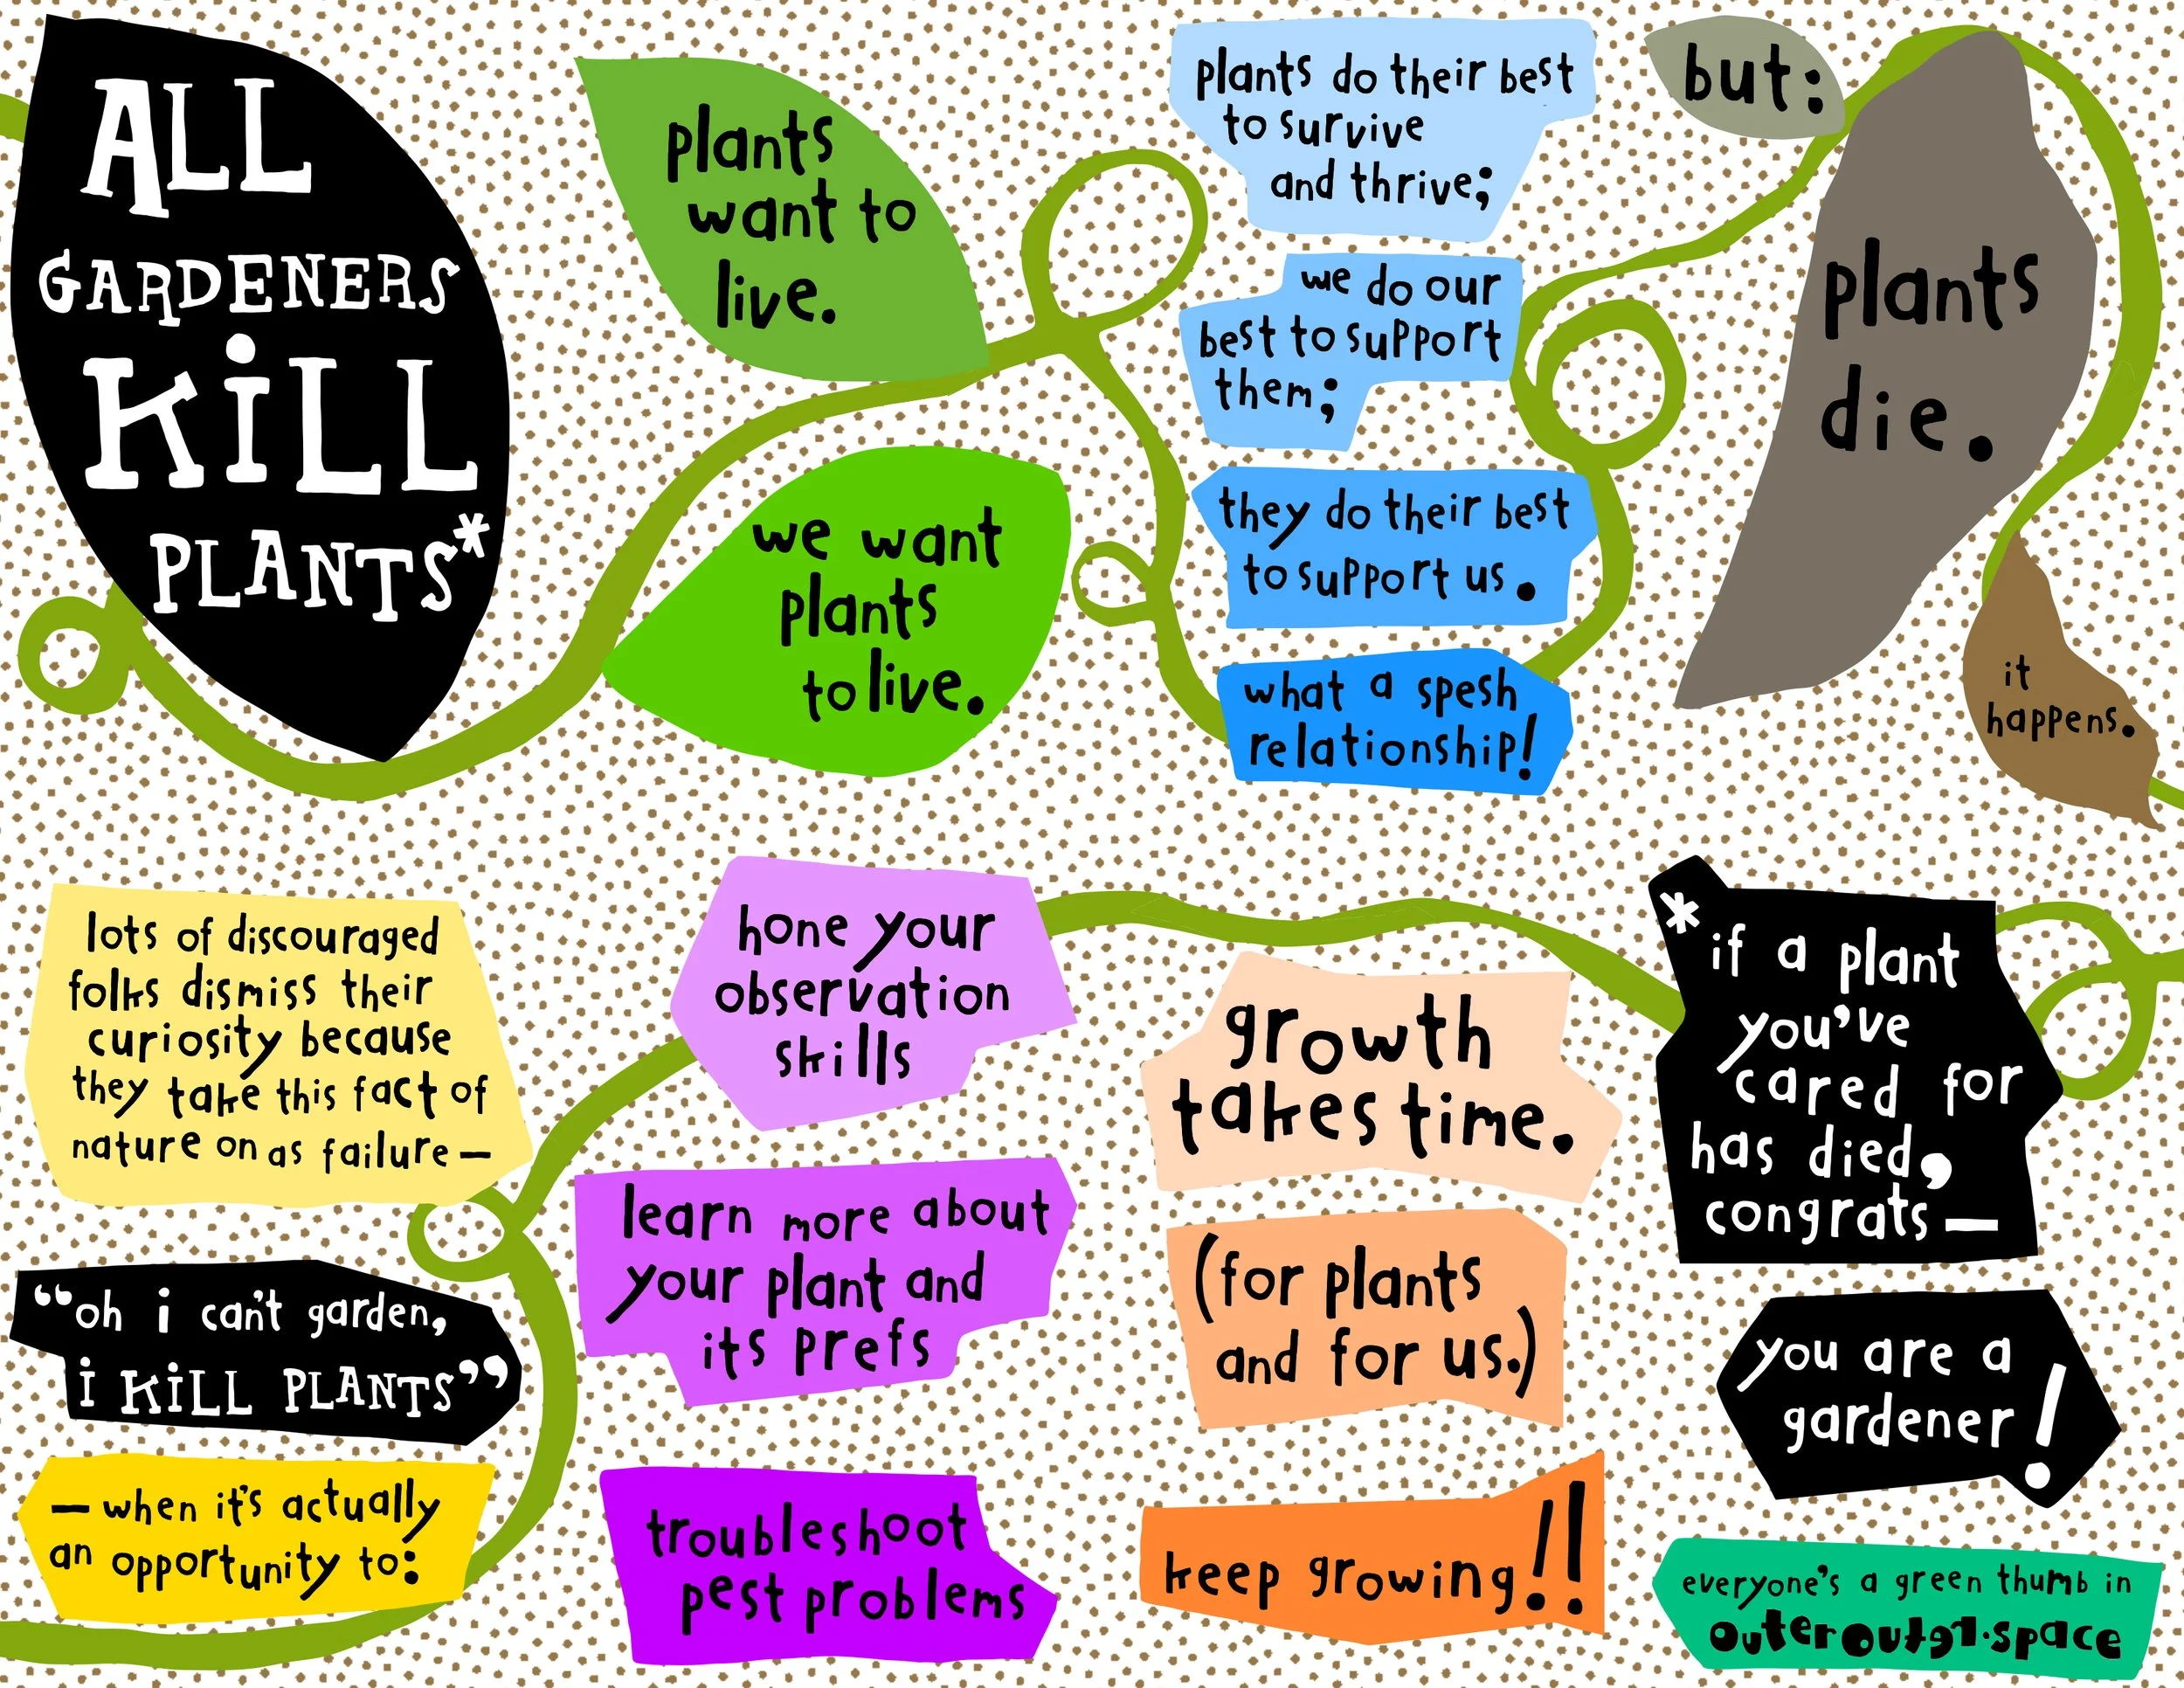 ALL
GARDENERS
KiLL
PLANTS*
plants
want to
live.
we want
plants
to live.
plants do their best
to survive
and thrive;
we do our
best to support
them;
they do their best
to support us.
what a spesh
relationship!
but:
plants
die.
it
happens.
lots of discouraged
folks dismiss their
curiosity because
they take this fact of
nature on as failure—
“oh i can't garden,
i KiLL PLANTS”
— when it's actually
an opportunity to:
hone your
observation
skills
learn more about
your plant and
its prefs
troubleshoot
pest problems
growth
takes time.
(for plants
and for us.)
keep growing!!
*if a plant
you've
cared for
has died,
congrats—
you are a
gardener!
everyone's a green thumb in